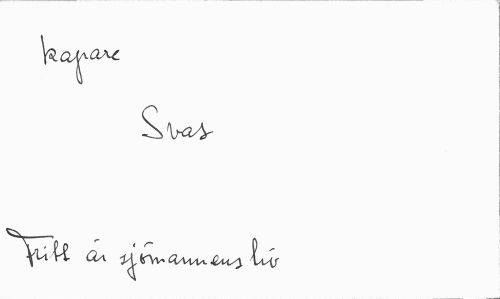 kapare
Svas
Fritt är sjömannens liv